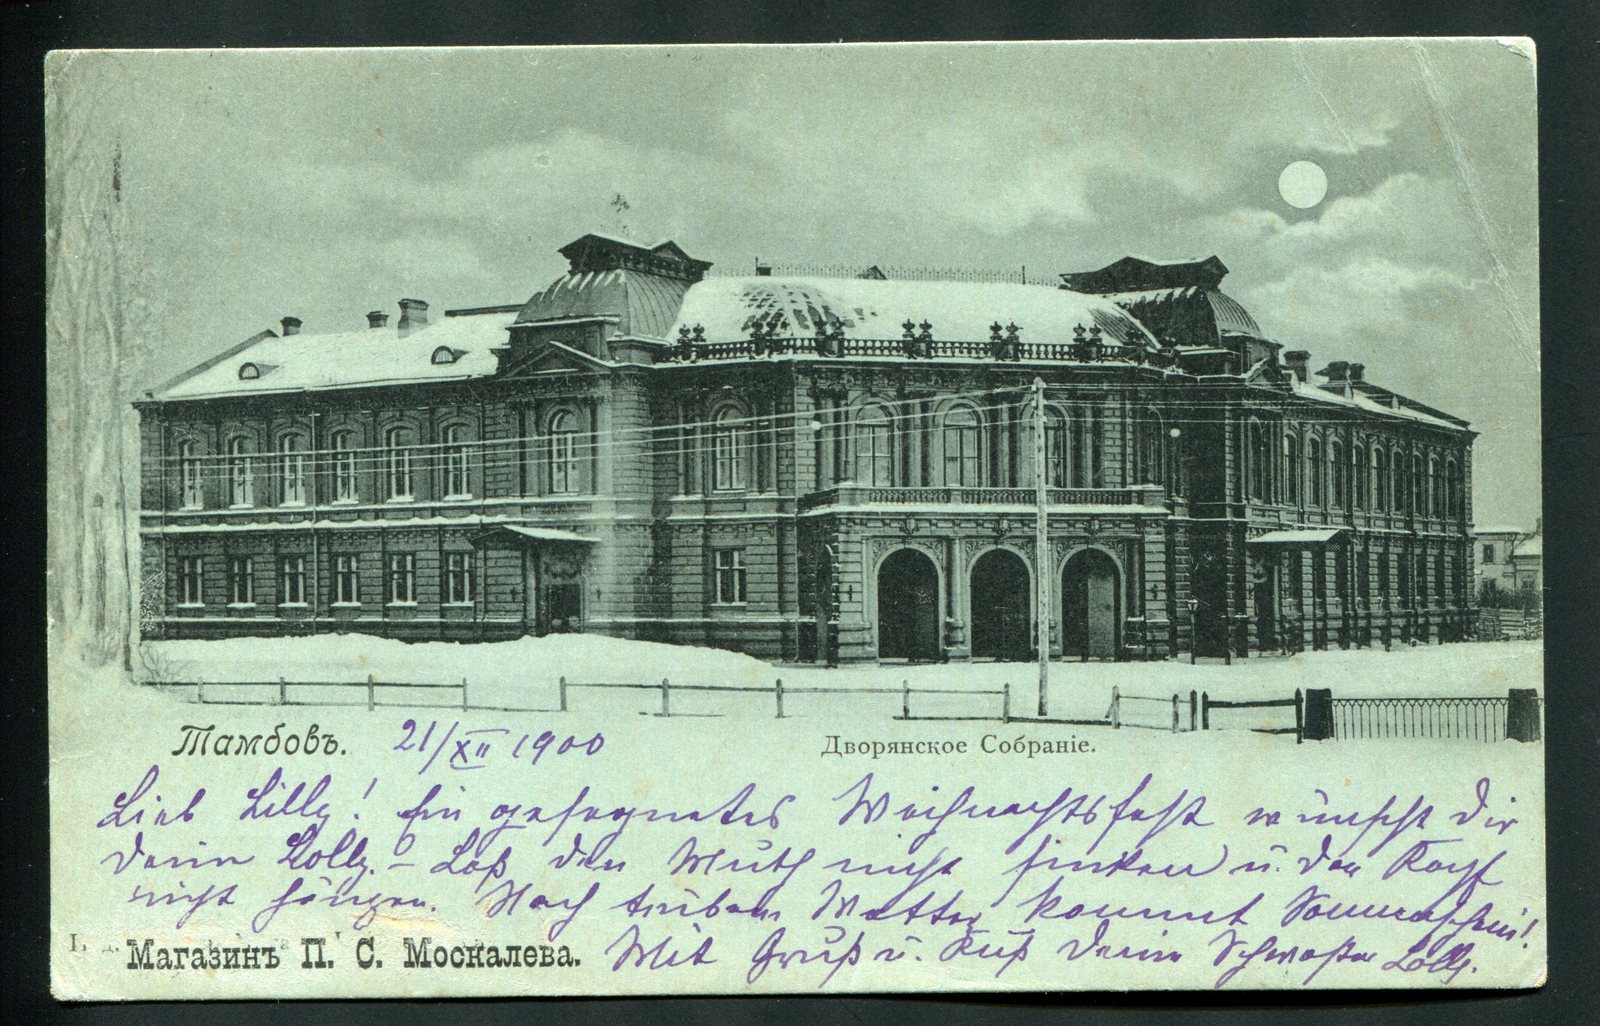 Тамбовъ. 21/XII 1900
Дворянское Собраніе.
Lieb Lilly! Ein gesegnetes Weihnachtsfest wünscht Dir
Deine Lolly. – Laß den Muth nicht sinken u. den Kopf
nicht hängen. Nach trübem Wetter kommt Sonnenschein!
Mit Gruß u. Kuß Deine Schwester Lolly.
Магазинъ П. С. Москалева.